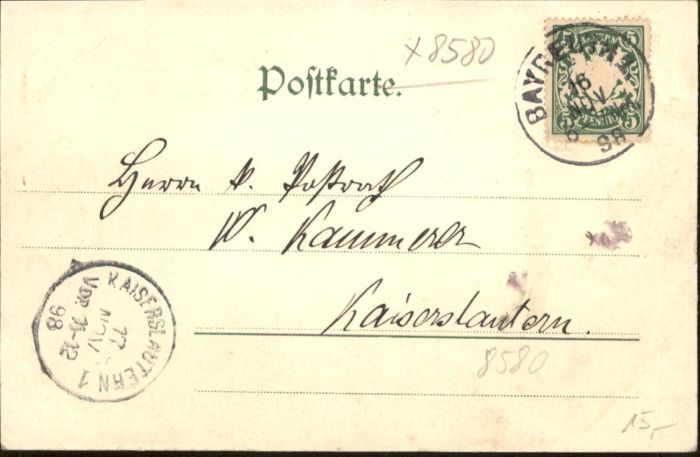 x8580
Postkarte.
BAYREUTH 2.
16
NOV
98
5 5
5 5
Herrn k. Postrath
W. Kammerer
Kaiserslautern.
8580
KAISERSLAUTERN 1
17
NOV
VOR. 11-12
98
15,-